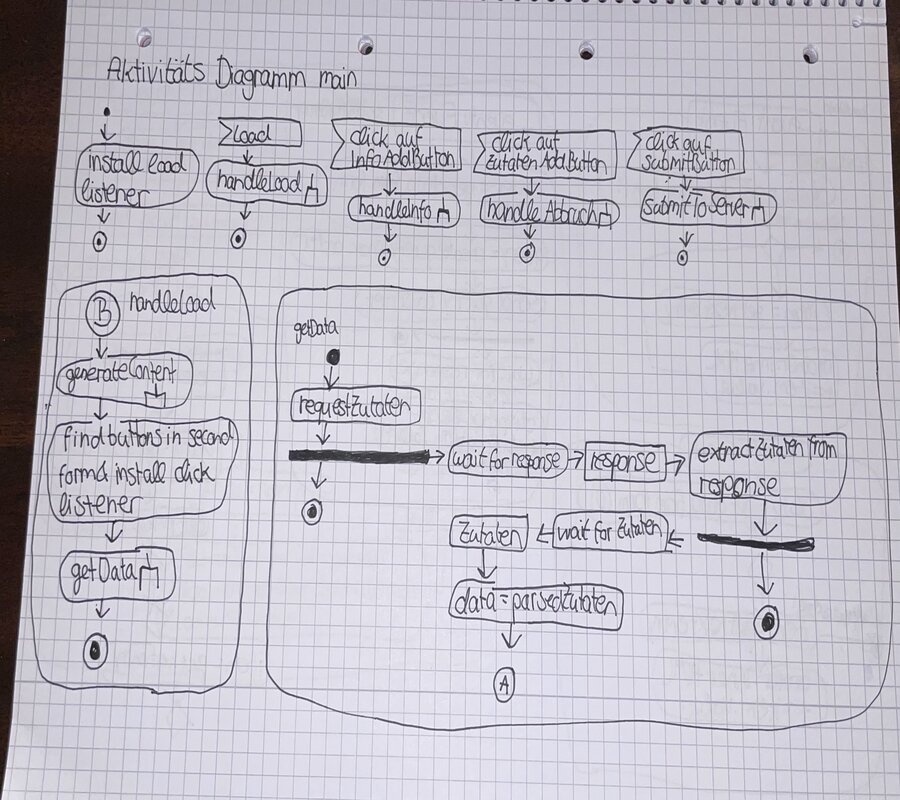 Aktivitäts Diagramm main
install load
listener
Load
handleLoad
click auf
InfoAddButton
handleInfo
click auf
ZutatenAddButton
handleAbbruch
click auf
submitButton
submitToServer
B
handleLoad
generateContent
find buttons in second
form & install click
listener
getData
getData
requestZutaten
wait for response
response
extract Zutaten from
response
wait for Zutaten
Zutaten
data = parsedZutaten
A